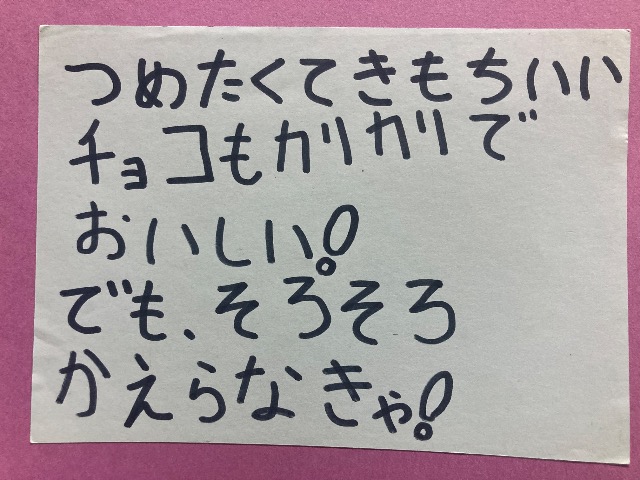 つめたくてきもちいい
チョコもカリカリで
おいしい!
でも、そろそろ
かえらなきゃ!